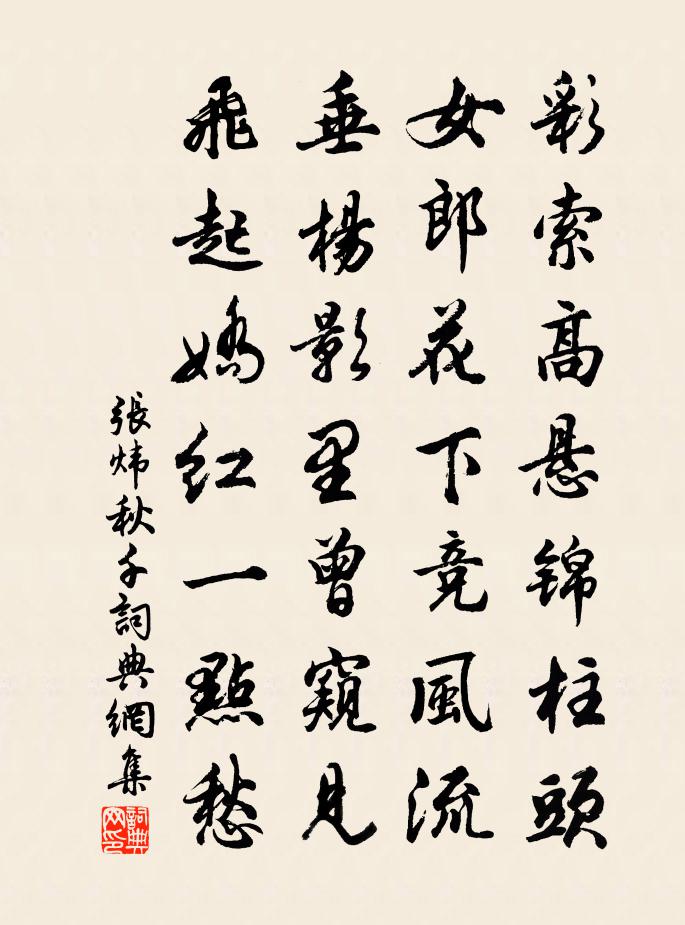 彩索高悬锦柱頭
女郎花下竞風流
垂楊影里曾窺見
飛起嬌紅一點愁
張炜秋千詞典網集
詞典网印